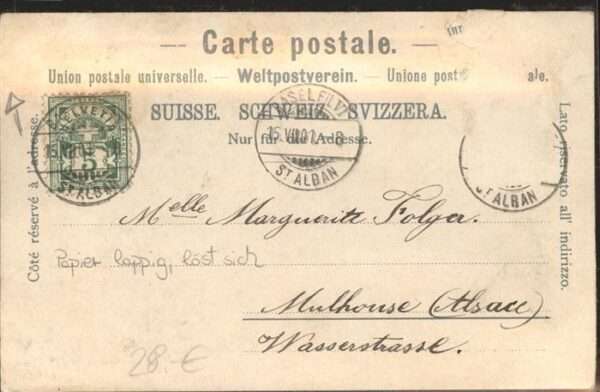 Carte postale.
Union postale universelle. — Weltpostverein. — Unione post ale.
SUISSE. SCHWEIZ. SVIZZERA.
Nur für die Adresse.
Côté réservé à l'adresse.
Lato riservato all' indirizzo.
HELVETIA
5
ST ALBAN
BASEL FIL.
15.VII.01.-8
ST ALBAN
ST ALBAN
Melle Marguerite Folger.
Papier lappig, löst sich
Mulhouse (Alsace)
Wasserstrasse.
28.-€